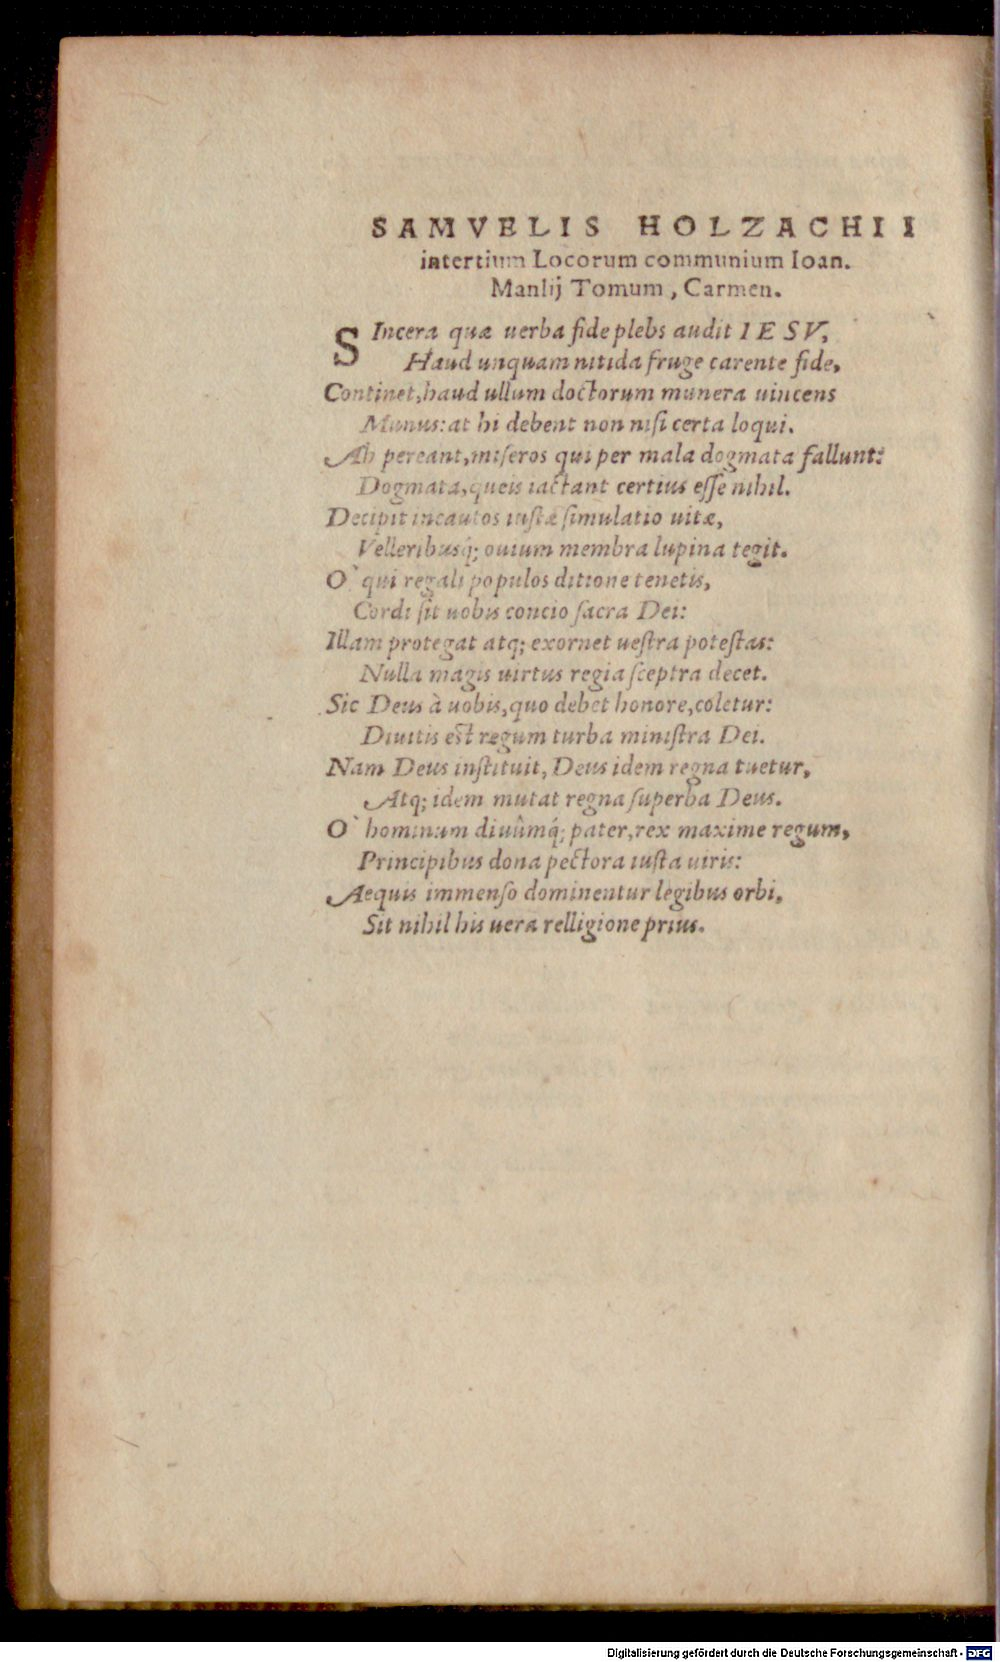 SAMVELIS HOLZACHII
in tertium Locorum communium Ioan.
Manlij Tomum, Carmen.
SIncera quæ uerba fide plebs audit IESV,
Haud unquam nitida fruge carente fide,
Continet, haud ullum doctorum munera uincens
Munus: at hi debent non niſi certa loqui.
Ah pereant, miſeros qui per mala dogmata fallunt:
Dogmata, queis iactant certius eſſe nihil.
Decipit incautos iuſtæ ſimulatio uitæ,
Velleribusq́; ouium membra lupina tegit.
O` qui regali populos ditione tenetis,
Cordi ſit uobis concio ſacra Dei:
Illam protegat atq; exornet ueſtra poteſtas:
Nulla magis uirtus regia ſceptra decet.
Sic Deus à uobis, quo debet honore, coletur:
Diuitis est regum turba miniſtra Dei.
Nam Deus inſtituit, Deus idem regna tuetur,
Atq; idem mutat regna ſuperba Deus.
O` hominum diuûmq́; pater, rex maxime regum,
Principibus dona pectora iuſta uiris:
Aequis immenſo dominentur legibus orbi,
Sit nihil his uera relligione prius.
Digitalisierung gefördert durch die Deutsche Forschungsgemeinschaft - DFG